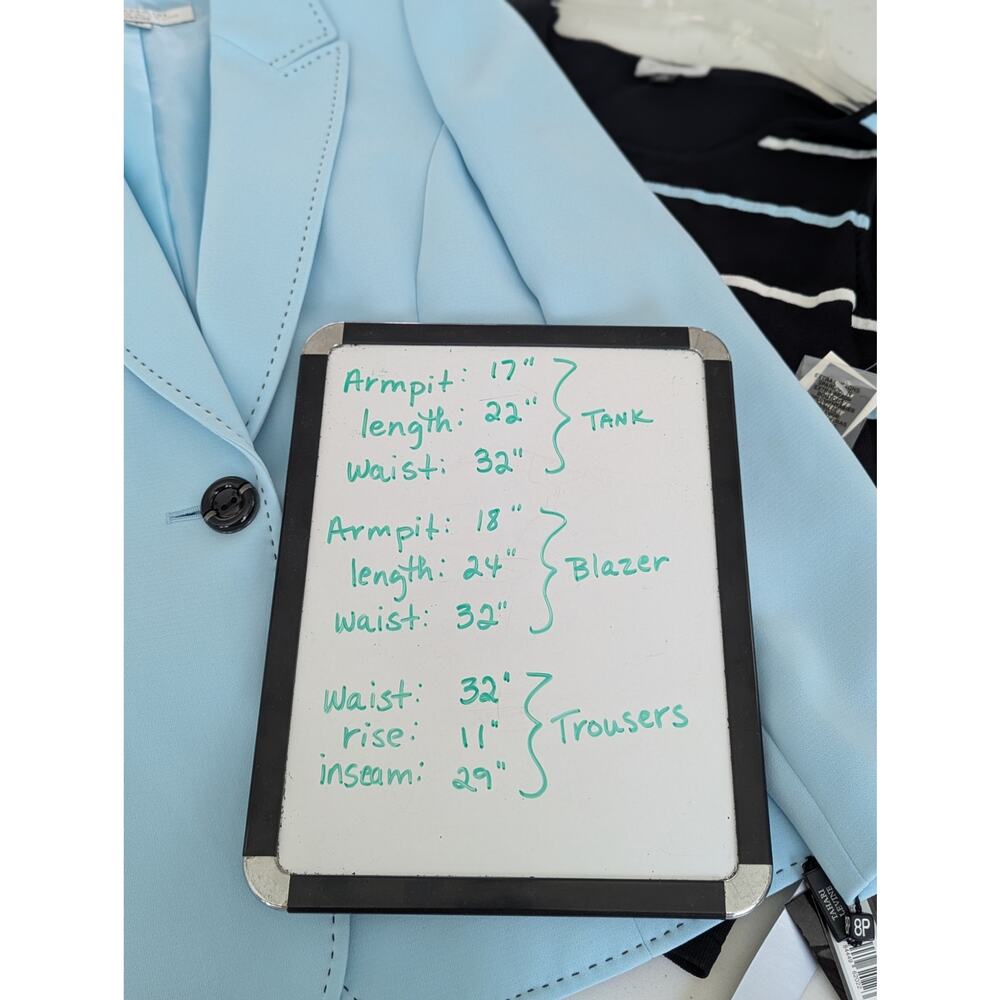 Armpit: 17"
length: 22"
waist: 32"
TANK
Armpit: 18"
length: 24"
waist: 32"
Blazer
Waist: 32"
rise: 11"
inseam: 29"
Trousers
TAHARI
LEVINE
8P